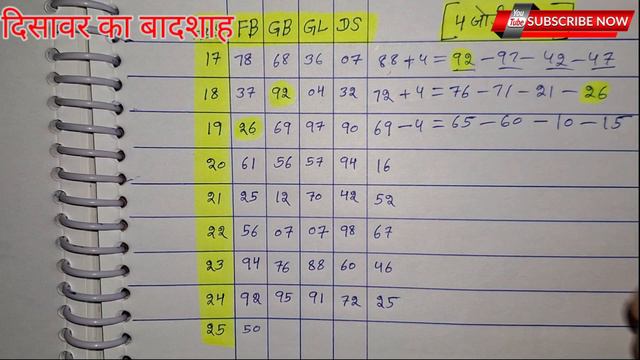 दिसावर का बादशाह
FB GB GL DS [4 जो
You Tube SUBSCRIBE NOW
17 78 68 36 07 88+4=92-97-42-47
18 37 92 04 32 72+4=76-71-21-26
19 26 69 97 90 69-4=65-60-10-15
20 61 56 57 94 16
21 25 12 70 42 52
22 56 07 07 98 67
23 94 76 88 60 46
24 92 95 91 72 25
25 50